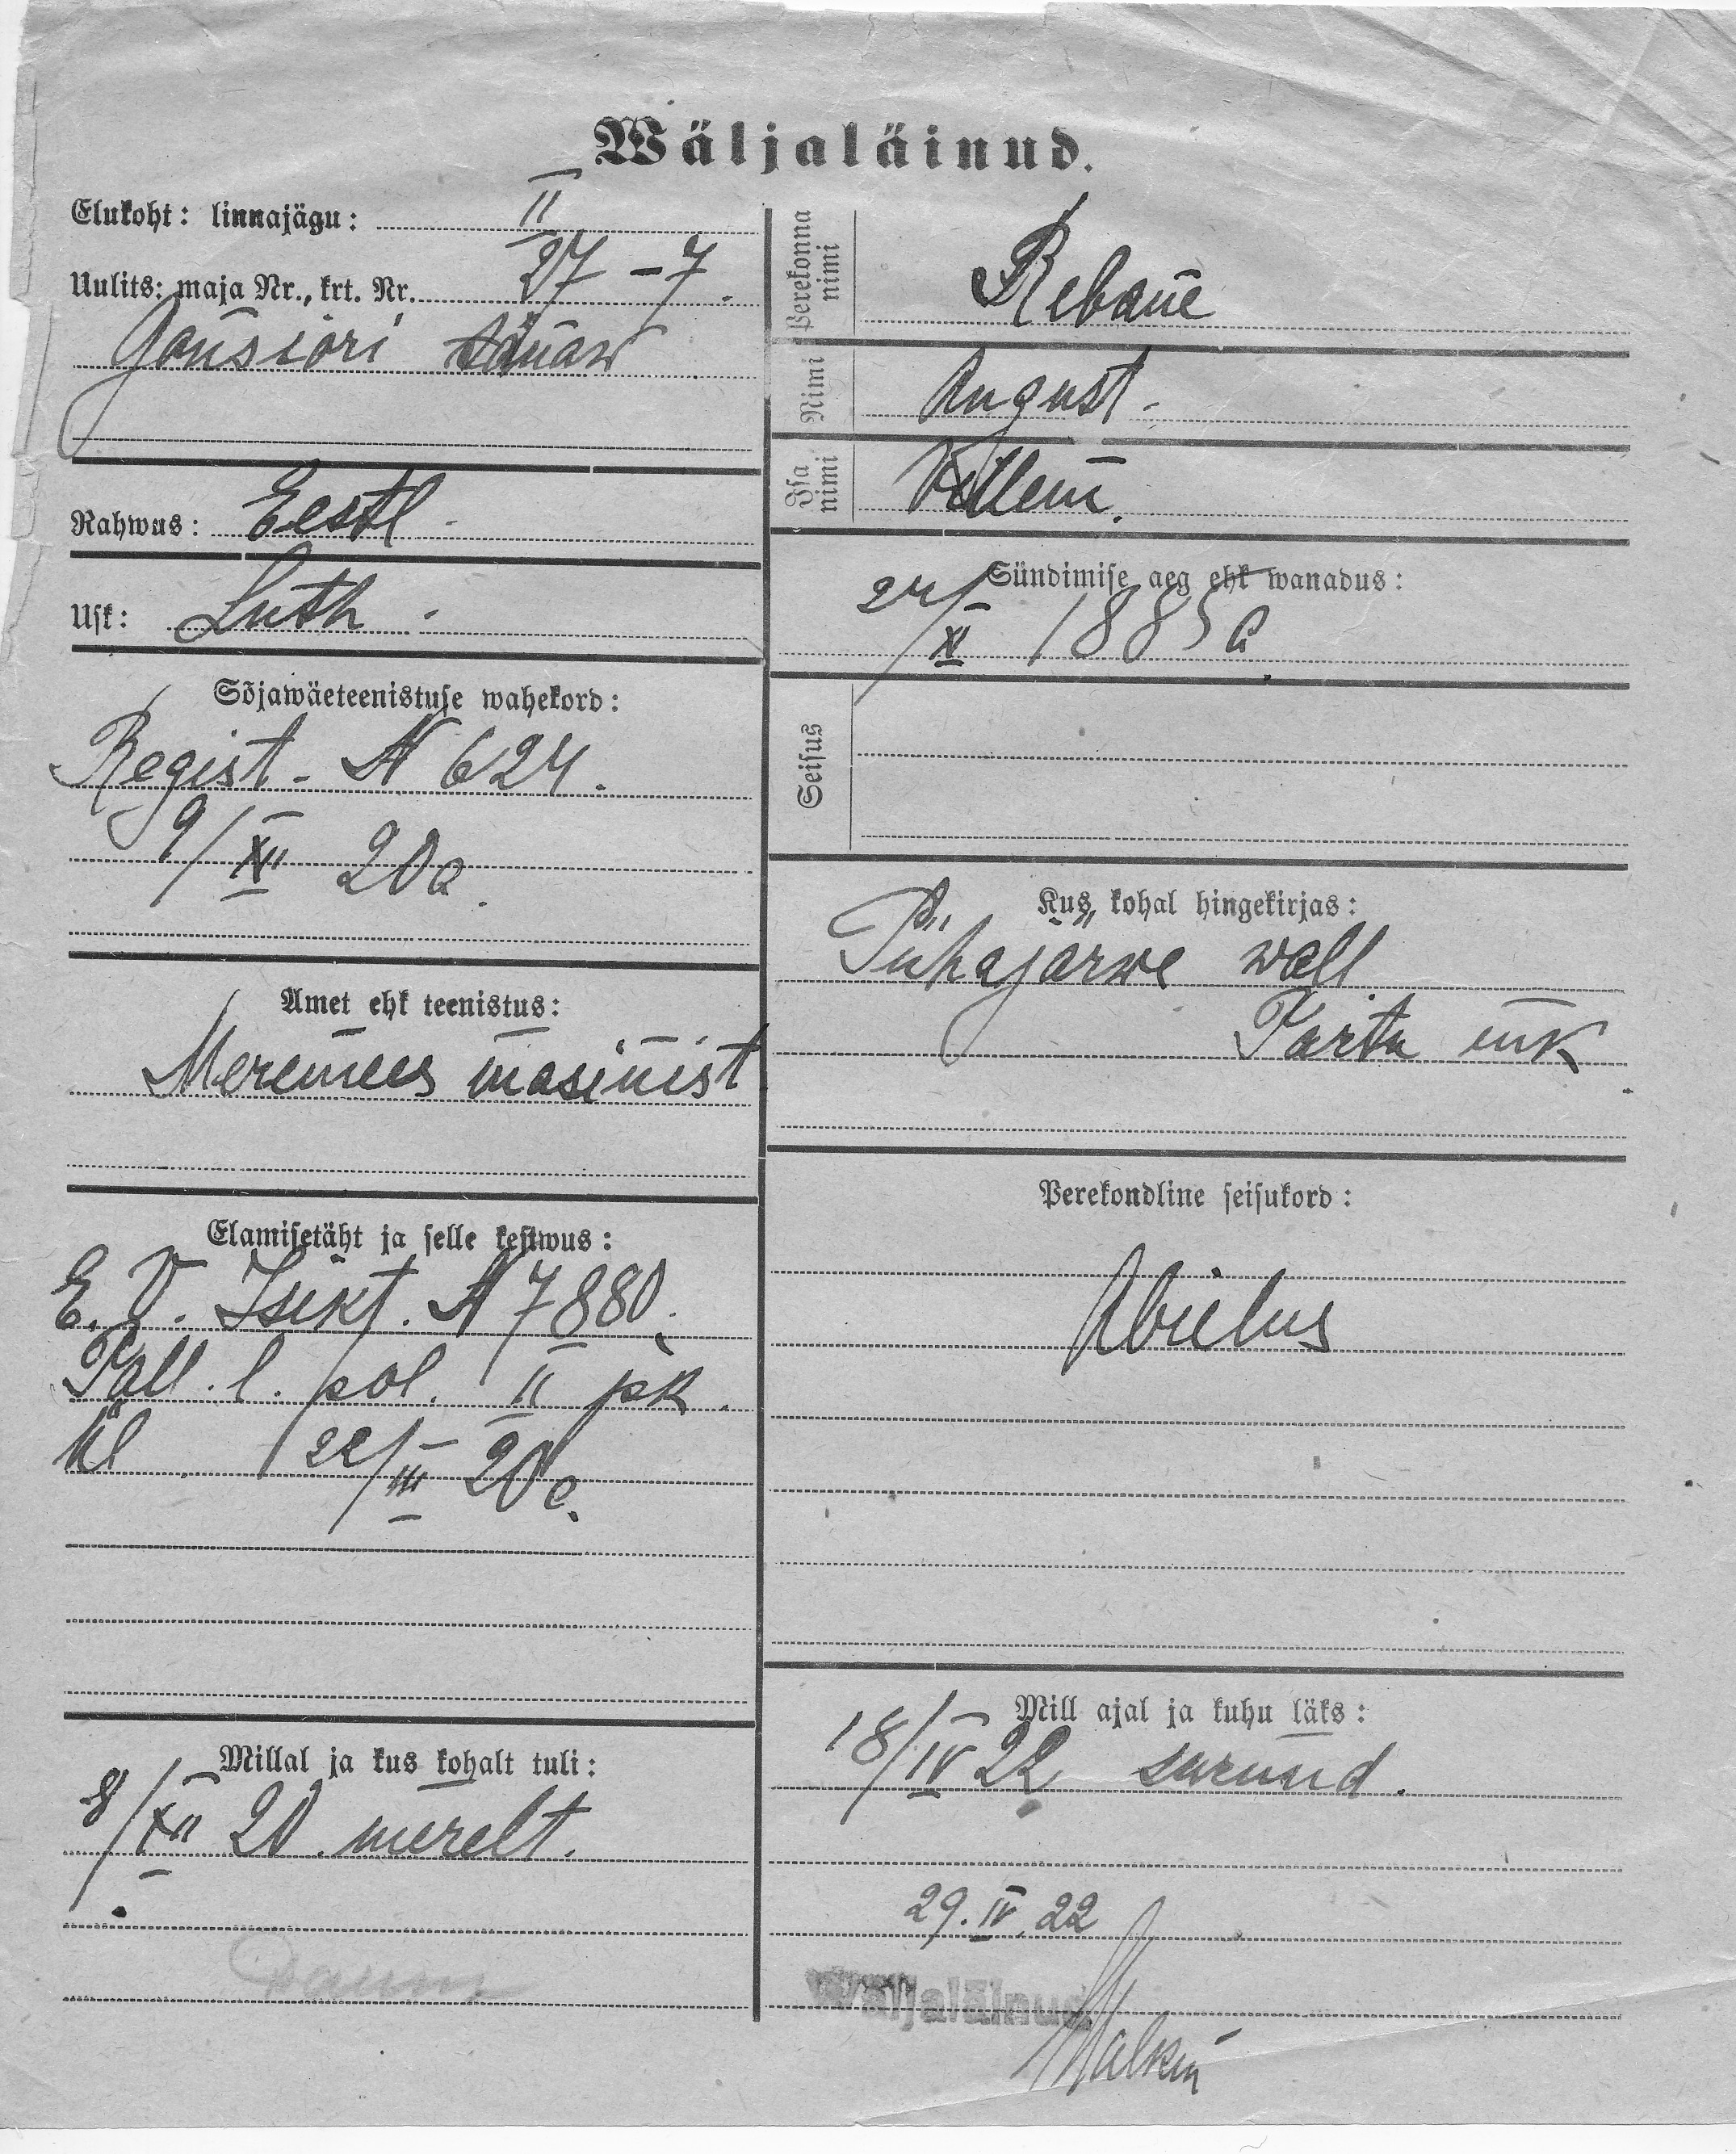 Wäljaläinud.
Elukoht: linnajägu: II
Uulits: maja Nr., krt. Nr. 27 – 7.
Gonsiori tänaw
Rahwus: Eestl.
Usk: Luth.
Sõjawäeteenistuse wahekord:
Regist. N 624.
9/XII 20 a.
Amet ehk teenistus:
Meremees masinist
Elamisetäht ja selle kestwus:
E. V. Isikt. N 7880.
Tall. l. pol. II pk.
ül 22/III 20 a.
Millal ja kus kohalt tuli:
8/XII 20. merelt.
Perekonna nimi Rebane
Nimi August.
Isa nimi Villem.
Sündimise aeg ehk wanadus:
24/XI 1885 a.
Seisus
Kus kohal hingekirjas:
Pühajärwe wall
Tartu mk.
Perekondline seisukord:
Abielus
Mill ajal ja kuhu läks:
18/IV 22 surnud.
29. IV 22
Wäljaläinud